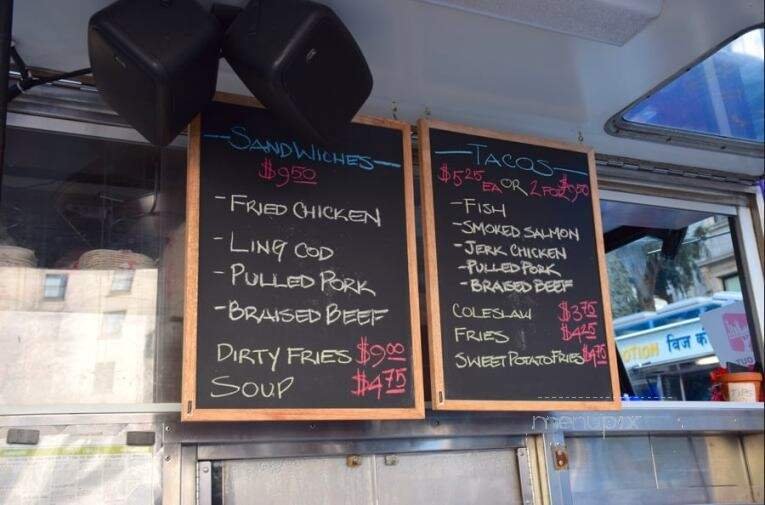 SANDWICHES
$9.50
- FRIED CHICKEN
- LING COD
- PULLED PORK
- BRAISED BEEF
DIRTY FRIES $9.00
SOUP $4.75
TACOS
$5.25 EA OR 2 FOR $9.50
- FISH
- SMOKED SALMON
- JERK CHICKEN
- PULLED PORK
- BRAISED BEEF
COLESLAW $3.75
FRIES $4.25
SWEET POTATO FRIES $4.75
OTION विज की
TIPS
menupix